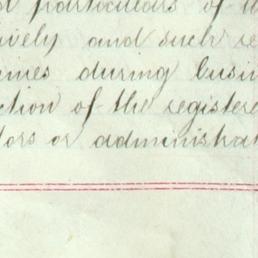 particulars of
ively and such re
imes during busin
ction of the registere
tors or administrat